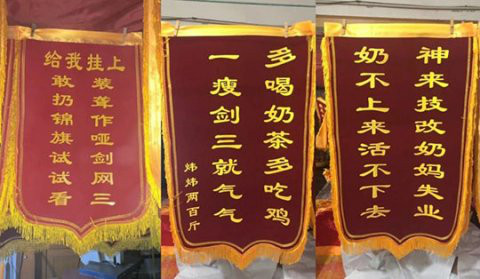 给我挂上
装聋作哑剑网三
敢扔锦旗试试看
多喝奶茶多吃鸡
一瘦剑三就气气
炜炜两百斤
神来技改奶妈失业
奶不上来活不下去